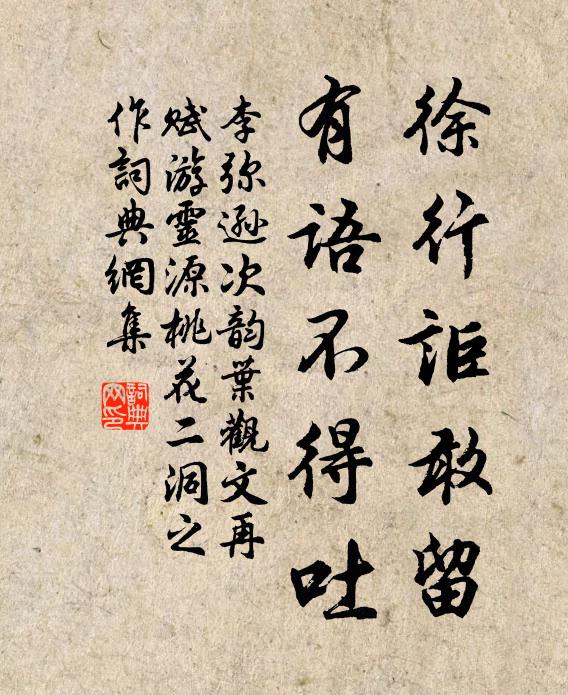 徐行詎敢留
有語不得吐
李弥遜次韵葉觀文再
賦游靈源桃花二洞之
作詞典網集
詞典网印